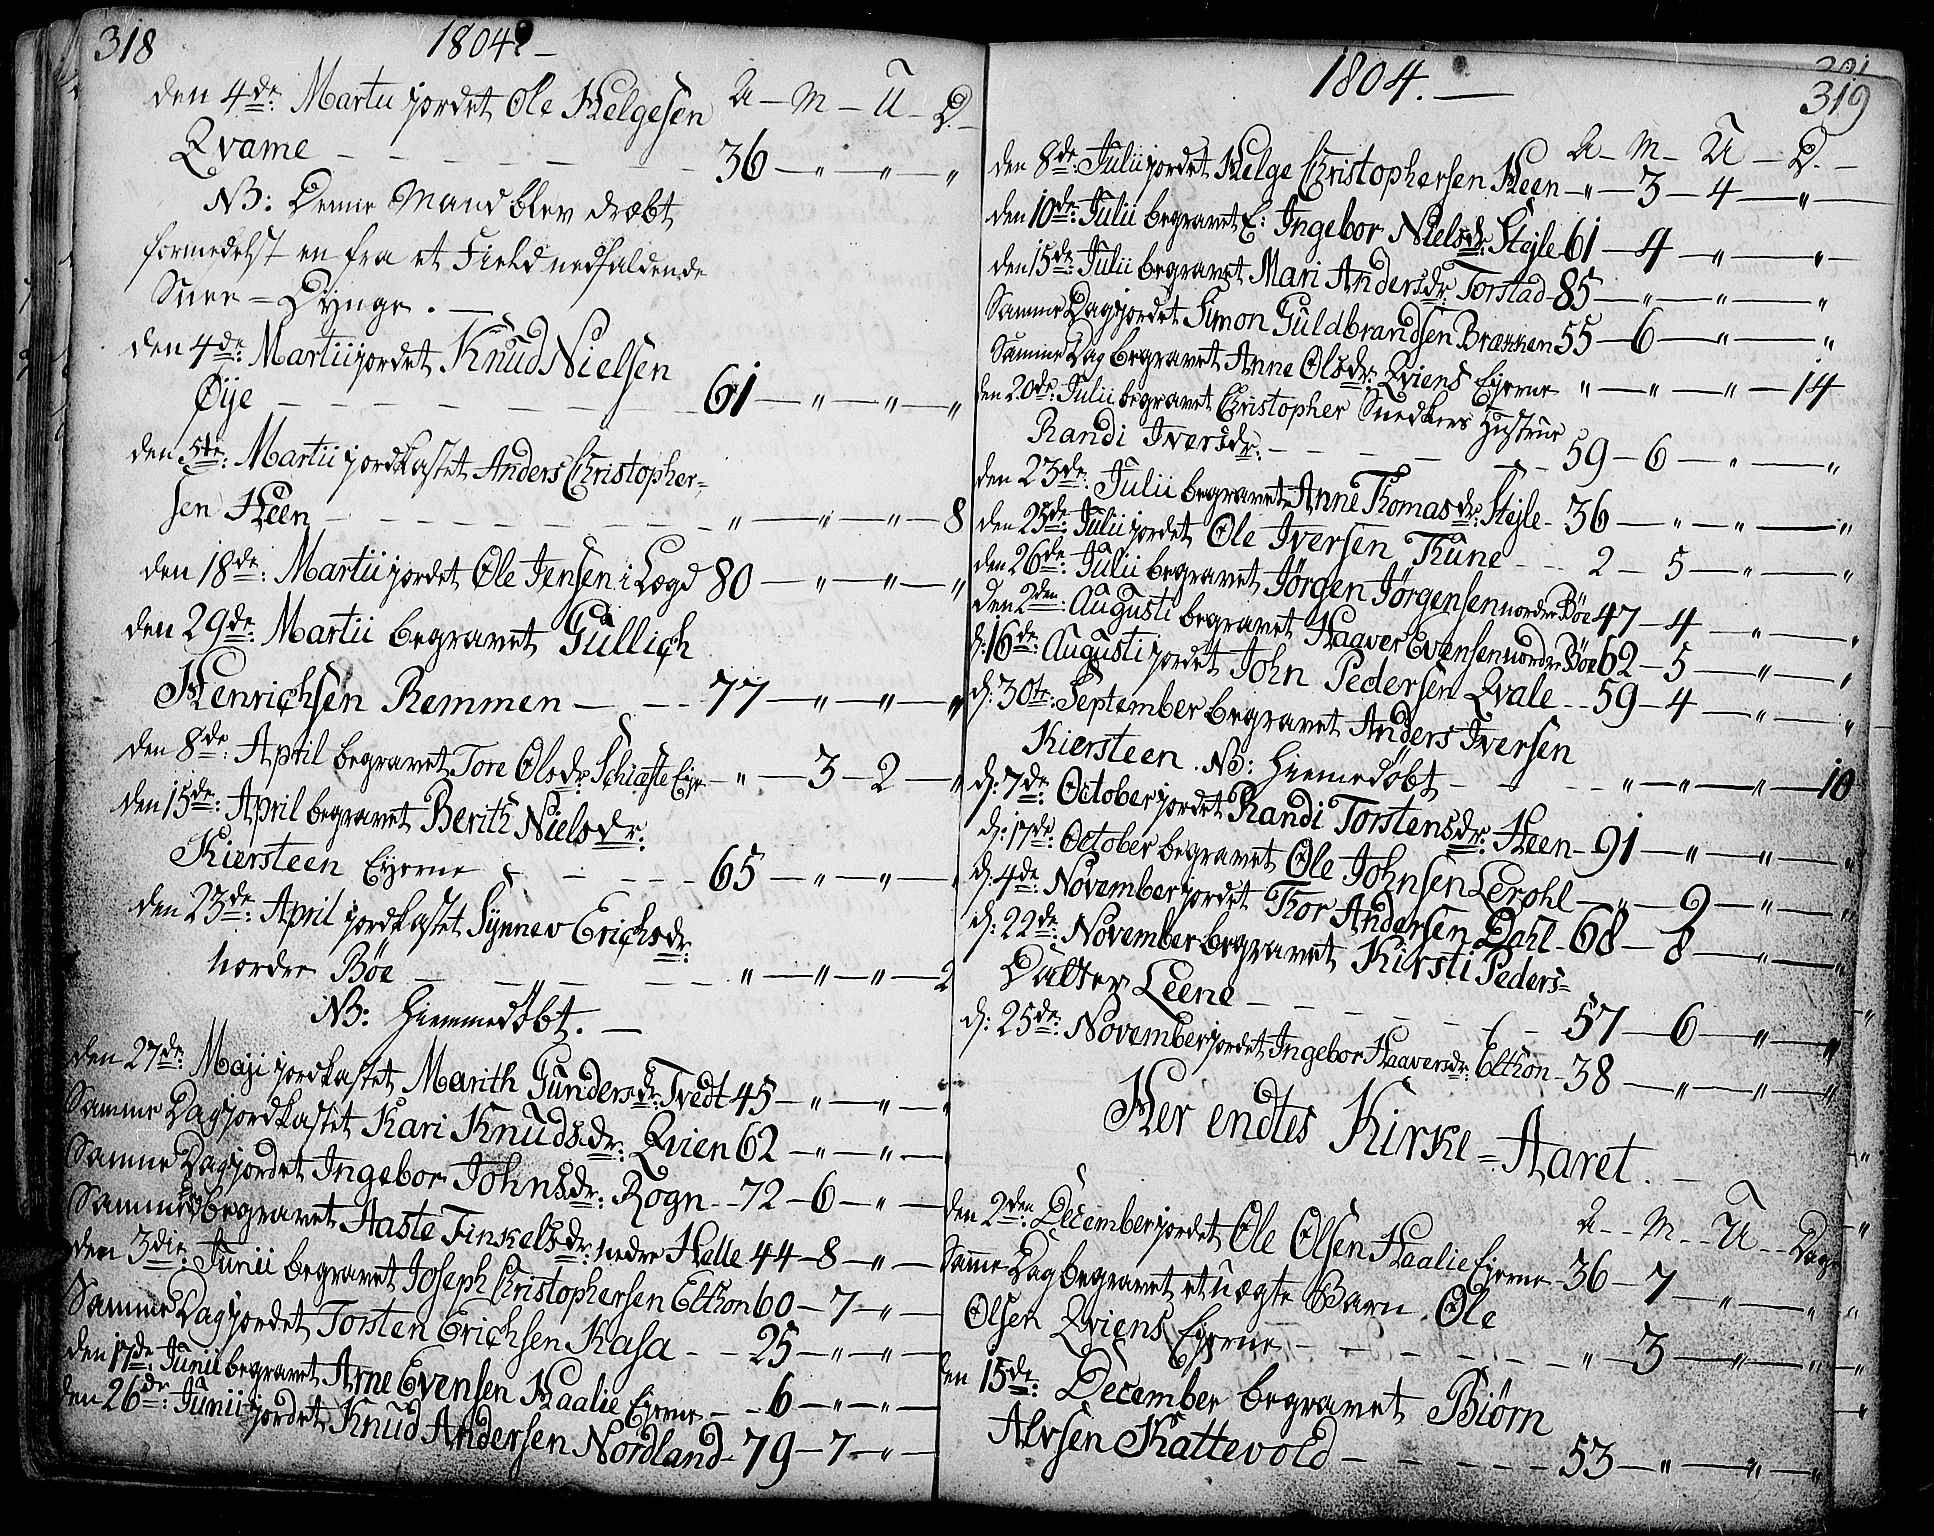 318 1804. —
den 4de: Martii jordet Ole Helgesen A — M — U — D. —
Qvame — — — — — — 36 — " — " — "
NB: Denne Mand blev dræbt
formedelst en fra et Field nedfaldende
Snee = Dynge. —
den 4de: Martii jordet Knud Nielsen
Øye — — — — — — — 61 — " — " — "
den 5te: Martii jordkastet Anders Christopher=
sen Heen — — — — — — — " — " — " — 8
den 18de: Martii jordet Ole Jensen i Lægd 80 — " — " — "
den 29de: Martii begravet Gullich
Henrichsen Remmen — — — 77 — " — " — "
den 8de: April begravet Tore Olsdr: Schiæfte Eye — " — 3 — 2 — "
den 15de: April begravet Berith Nielsdr:
Kiersteen Eyerne — — — — 65 — " — " — "
den 23de: April jordkastet Synnev Erichsdr:
nordre Böe — — — — — — " — " — " — 2
NB: Hiemmedøbt. —
den 27de: Maji jordkastet Marith Gundersdr: Tvedt 45 — " — " — "
Samme Dag jordkastet Kari Knudsdr: Qvien 62 — " — " — "
Samme Dag jordet Ingebor Johnsdr: Rogn — 72 — 6 — " —
Samme D begravet Aaste Finkelsdr: indre Helle 44 — 8 — " —
den 3die: Junii begravet Joseph Christophersen Elthon 60 — 7 — " —
Samme Dag jordet Torsten Erichsen Kasa — — 25 — " — " —
den 17de: Junii begravet Arne Evensen Haalie Eyerne — — 6 — " — " —
den 26de: Junii jordet Knud Andersen Nordland — 79 — 7 — " —
1804. —
319
A — M — U — D. —
den 8de: Julii jordet Helge Christophersen Heen — " — 3 — 4 — " —
den 10de: Julii begravet E: Ingebor Nielsdr: Stejle 61 — 4 — " — " —
den 15de: Julii begravet Mari Andersdr: Torstad — 85 — " — " — "
Samme Dag jordet Simon Guldbrandsen Brækken 55 — 6 — " — "
Samme Dag begravet Anne Olsdr: Qviens Eyerne " — " — " — 14
den 20de: Julii begravet Christopher Snedkers Hustrue
Randi Iversdr: — — — — — 59 — 6 — " — "
den 23de: Julii begravet Anne Thomasdr: Stejle — 36 — " — " — "
den 25de: Julii jordet Ole Iversen Thune — — 2 — 5 — " — "
den 26de: Julii begravet Jørgen Jørgensen nordre Böe 47 — 4 — " — "
den 2den: Augusti begravet Haaver Evensen nordre Böe 62 — 5 — " — "
d: 16de: Augusti jordet John Pedersen Qvale — 59 — 4 — " — "
d: 30te: September begravet Anders Iversen
Kiersteen. NB: Hiemedøbt — — — " — " — " — 10
d: 7de: October jordet Randi Torstensdr: Heen — 91 — " — " — "
d: 17de: October begravet Ole Johnsen Lerohl — " — 9 — " — "
d: 4de: November jordet Thor Andersen Dahl — 68 — 8 — " — "
d: 22de: November begravet Kirsti Peders=
Datter Leene — — — — — — 57 — 6 — " — "
d: 25de: November jordet Ingebor Haaversdr: Elthon — 38 — " — " — "
Her endtes Kirke = Aaret. —
A — M — U — Dage
den 2den: December jordet Ole Olsen Haalie Eyerne — 36 — 7 — " — "
Samme Dag begravet et uægte Barn Ole
Olsen Qviens Eyerne — — — — — " — 3 — " — "
den 15de: December begravet Biørn
Alvsen Kattevold — — — — — 53 — " — " — "